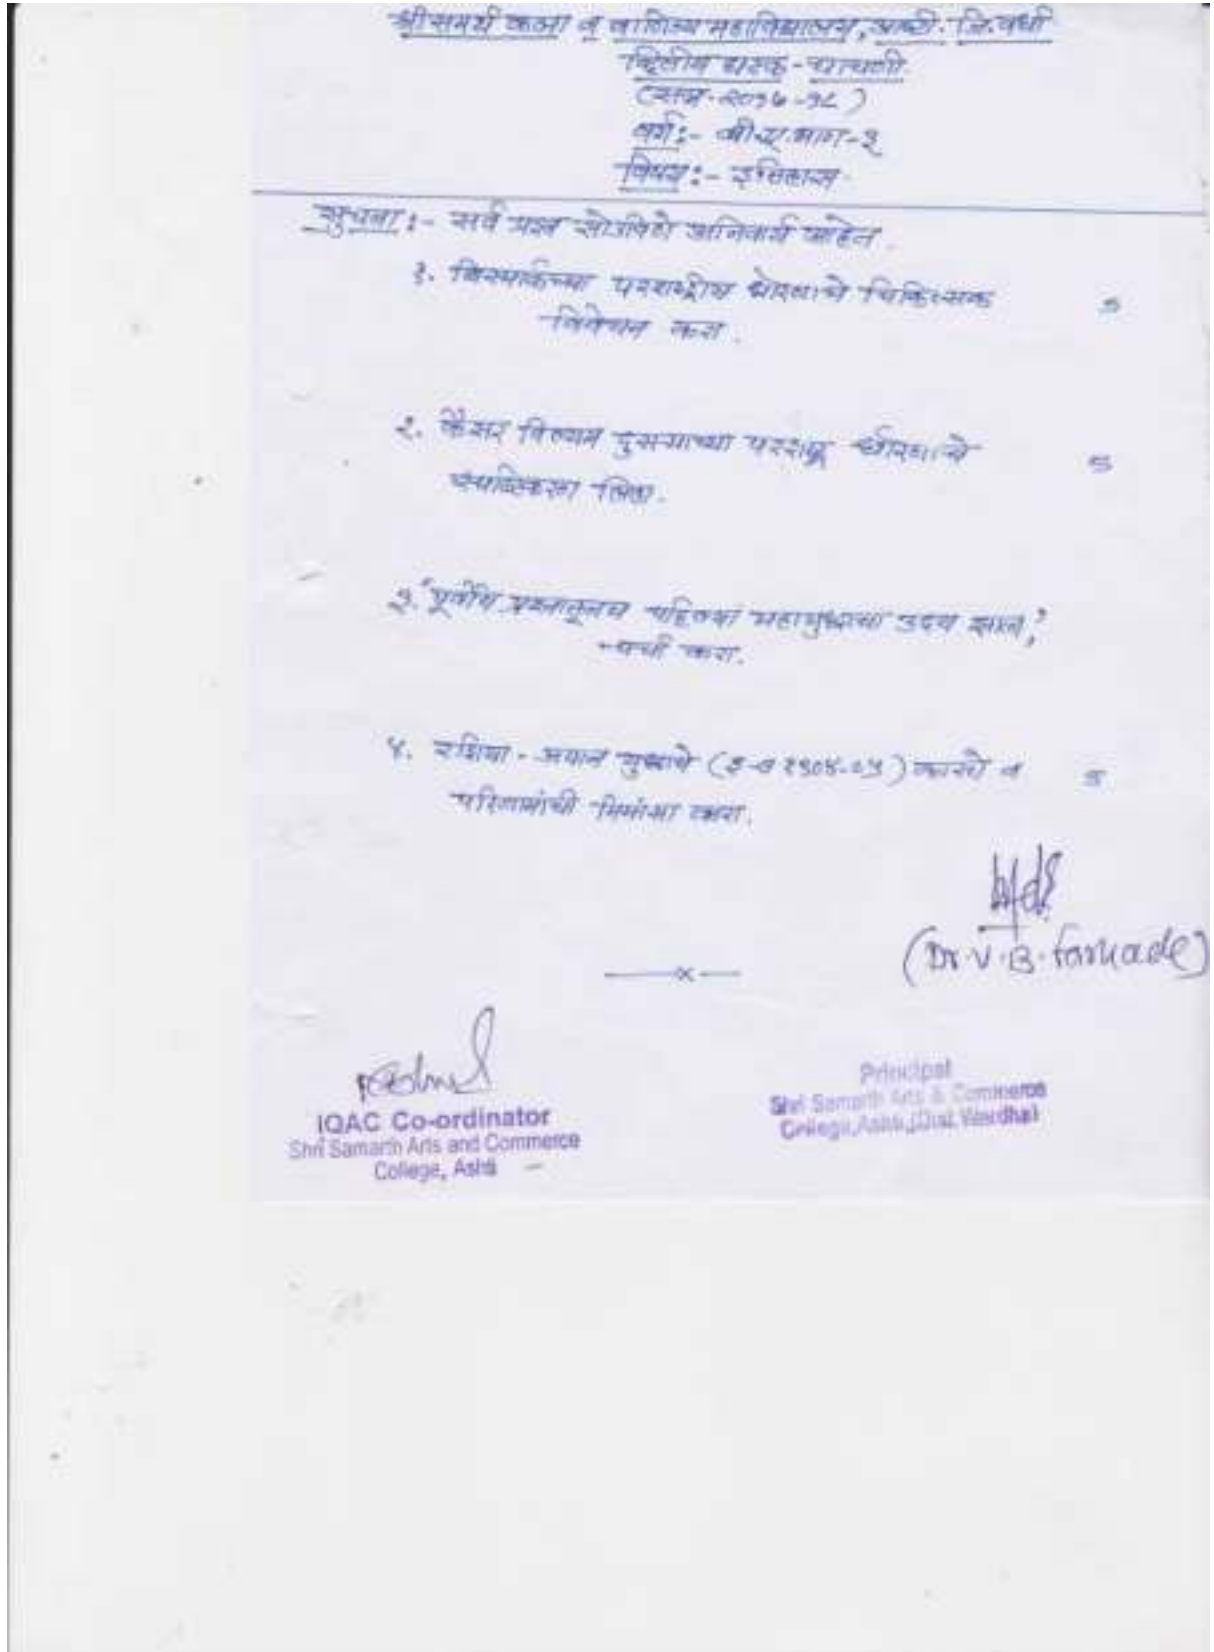 श्री समर्थ कला व वाणिज्य महाविद्यालय, आष्टी. जि. वर्धा
द्वितीय घटक - चाचणी
(सत्र - २०१७ -१८)
वर्ग :- बी.ए. भाग - ३
विषय :- इतिहास
सुचना :- सर्व प्रश्न सोडविणे अनिवार्य आहेत.
१. बिस्मार्कच्या परराष्ट्रीय धोरणाचे चिकित्सक ५
विवेचन करा.
२. कैसर विल्यम दुसऱ्याच्या परराष्ट्र धोरणाचे ५
लिहा.
३. "पूर्वीय प्रश्नातूनच पहिल्या महायुध्दाचा उदय झाला,"
चर्चा करा.
४. रशिया - जपान युध्दाचे (इ-स १९०४-०५) कारणे व ५
परिणामांची मिमांसा करा.
(Dr. V. B. Farkade)
—x—
IQAC Co-ordinator
Shri Samarth Arts and Commerce
College, Ashti
Principal
Shri Samarth Arts & Commerce
College, Ashti, (Dist. Wardha)